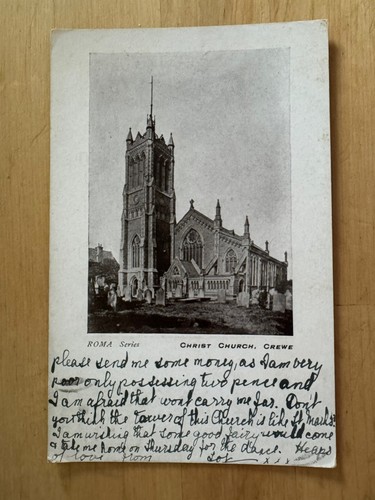 ROMA Series
CHRIST CHURCH, CREWE
please send me some money, as I am very
poor only possessing two pence and
I am afraid that wont carry me far. Don't
you think the tower of this Church is like St. mark's?
I am wishing that some good fairy would come
& take me home on Thursday for the dance. Heaps
of love from Dot x x x